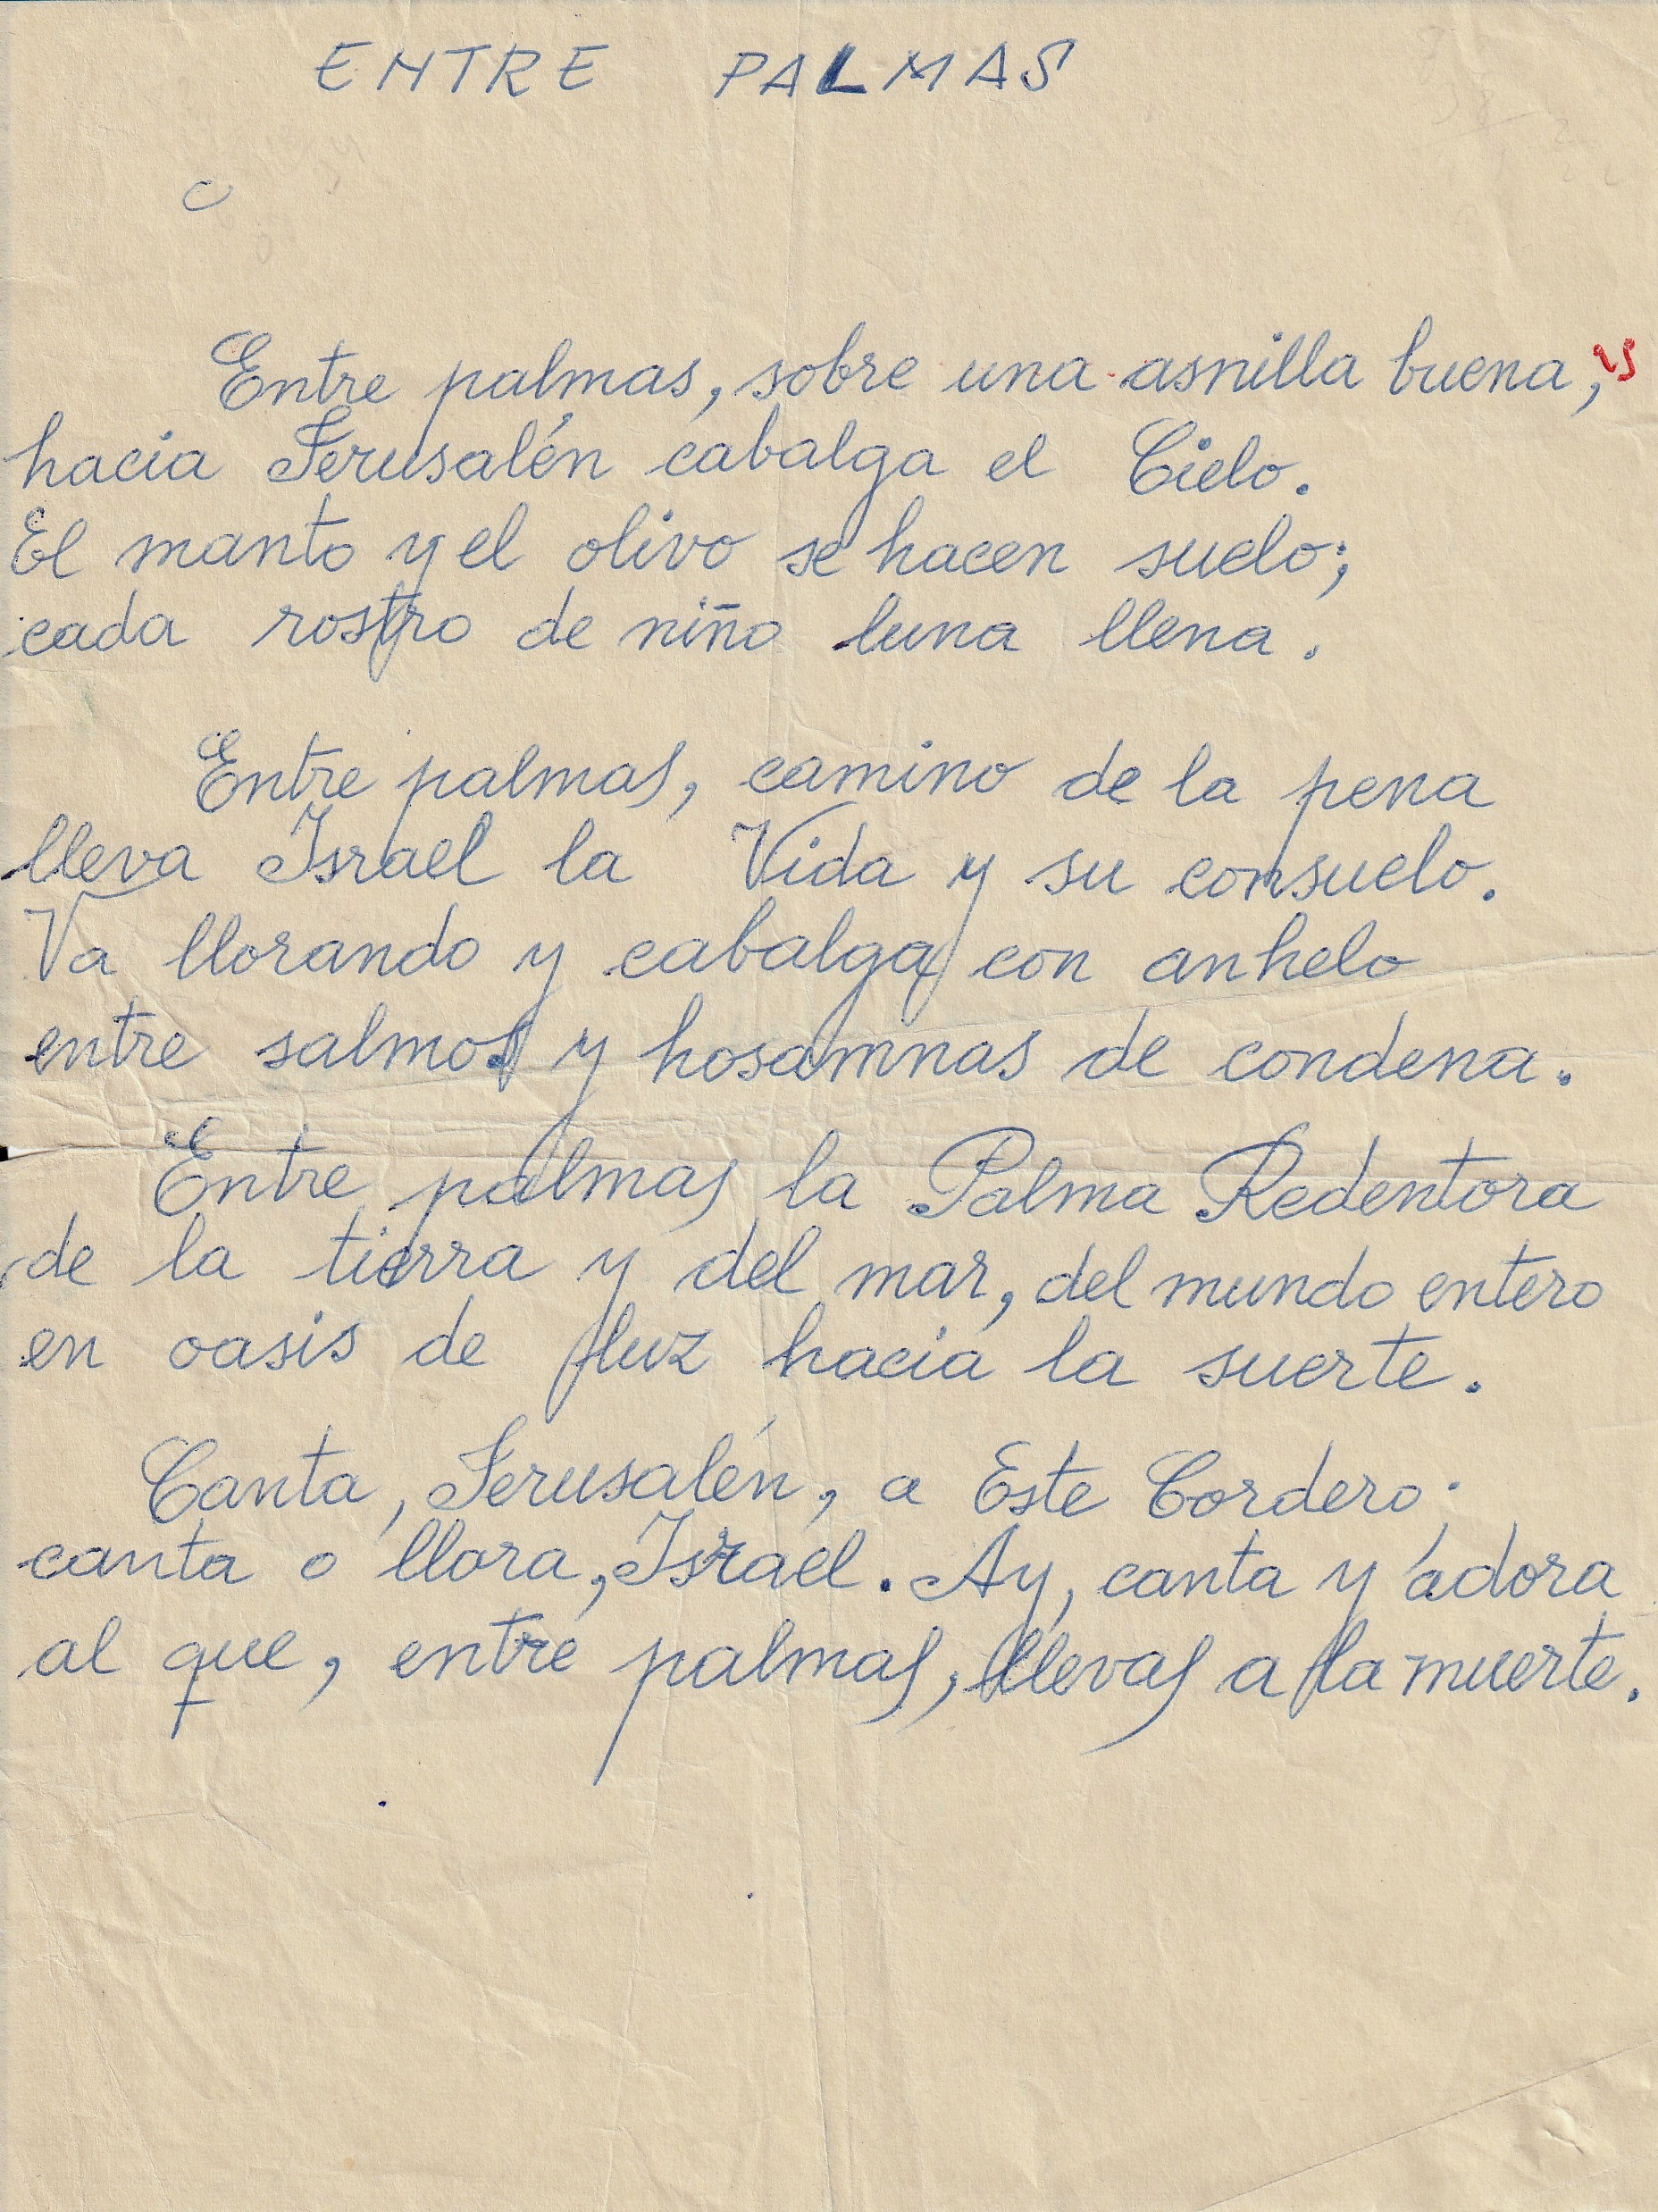 ENTRE PALMAS
Entre palmas, sobre una asnilla buena,
hacia Jerusalén cabalga el Cielo.
El manto y el olivo se hacen suelo;
cada rostro de niño luna llena.
Entre palmas, camino de la pena
lleva Israel la Vida y su consuelo.
Va llorando y cabalga con anhelo
entre salmos y hosamnas de condena.
Entre palmas la Palma Redentora
de la tierra y del mar, del mundo entero
en oasis de luz hacia la suerte.
Canta, Jerusalén, a Este Cordero;
canta o llora, Israel. Ay, canta y adora
al que, entre palmas, llevas a la muerte.